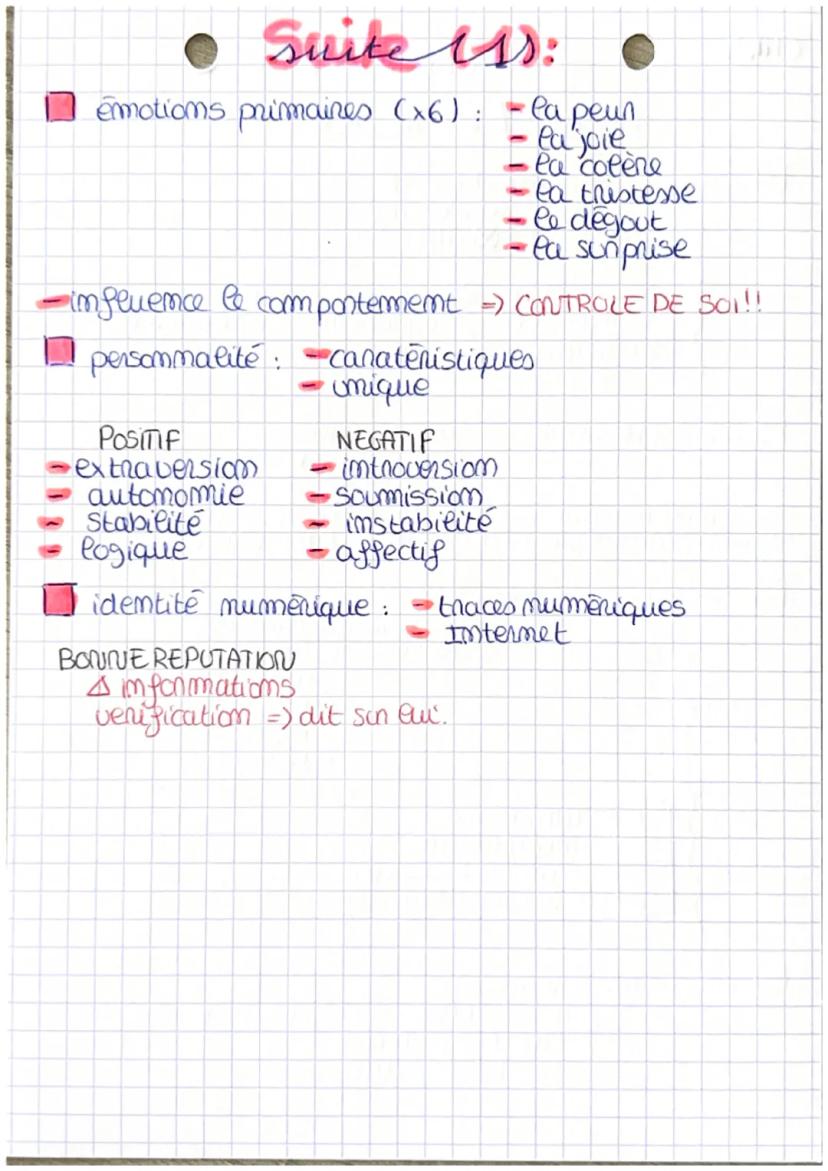 suite (1):
émotions primaires (x6) : - la peur
- la joie
- la colère
- la tristesse
- le dégout
- la surprise
- influence le comportement => CONTROLE DE SOI!!
personnalité : - caratéristiques
- unique
POSITIF NEGATIF
- extraversion - introversion
- autonomie - soumission
- stabilité - instabilité
- logique - affectif
identité numérique : - traces numériques
- Internet
BONNE REPUTATION
⚠ informations
verification => dit sur lui.